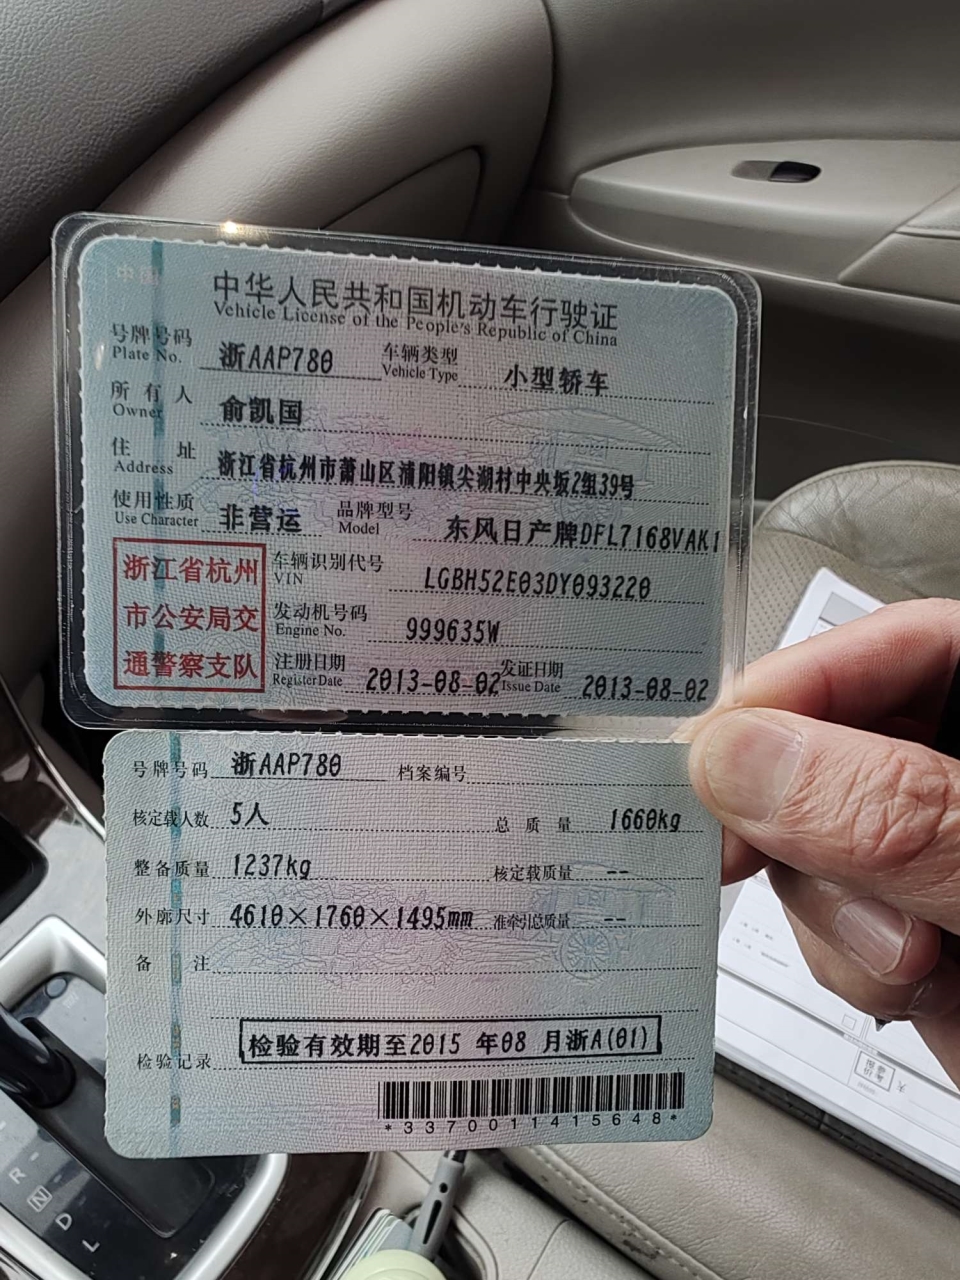 中华人民共和国机动车行驶证
Vehicle License of the People's Republic of China
号牌号码 浙AAP780 车辆类型 小型轿车
Plate No. Vehicle Type
所有人 俞凯国
Owner
住址 浙江省杭州市萧山区浦阳镇尖湖村中央坂2组39号
Address
使用性质 非营运 品牌型号 东风日产牌DFL7168VAK1
Use Character Model
浙江省杭州
市公安局交
通警察支队
车辆识别代号 LGBH52E03DY093220
VIN
发动机号码 999635W
Engine No.
注册日期 2013-08-02 发证日期 2013-08-02
Register Date Issue Date
号牌号码 浙AAP780 档案编号
核定载人数 5人 总质量 1660kg
整备质量 1237kg 核定载质量 --
外廓尺寸 4610×1760×1495mm 准牵引总质量 --
备注
检验记录 检验有效期至2015 年08 月浙A(01)
*3370011415648*
R
N
D
L